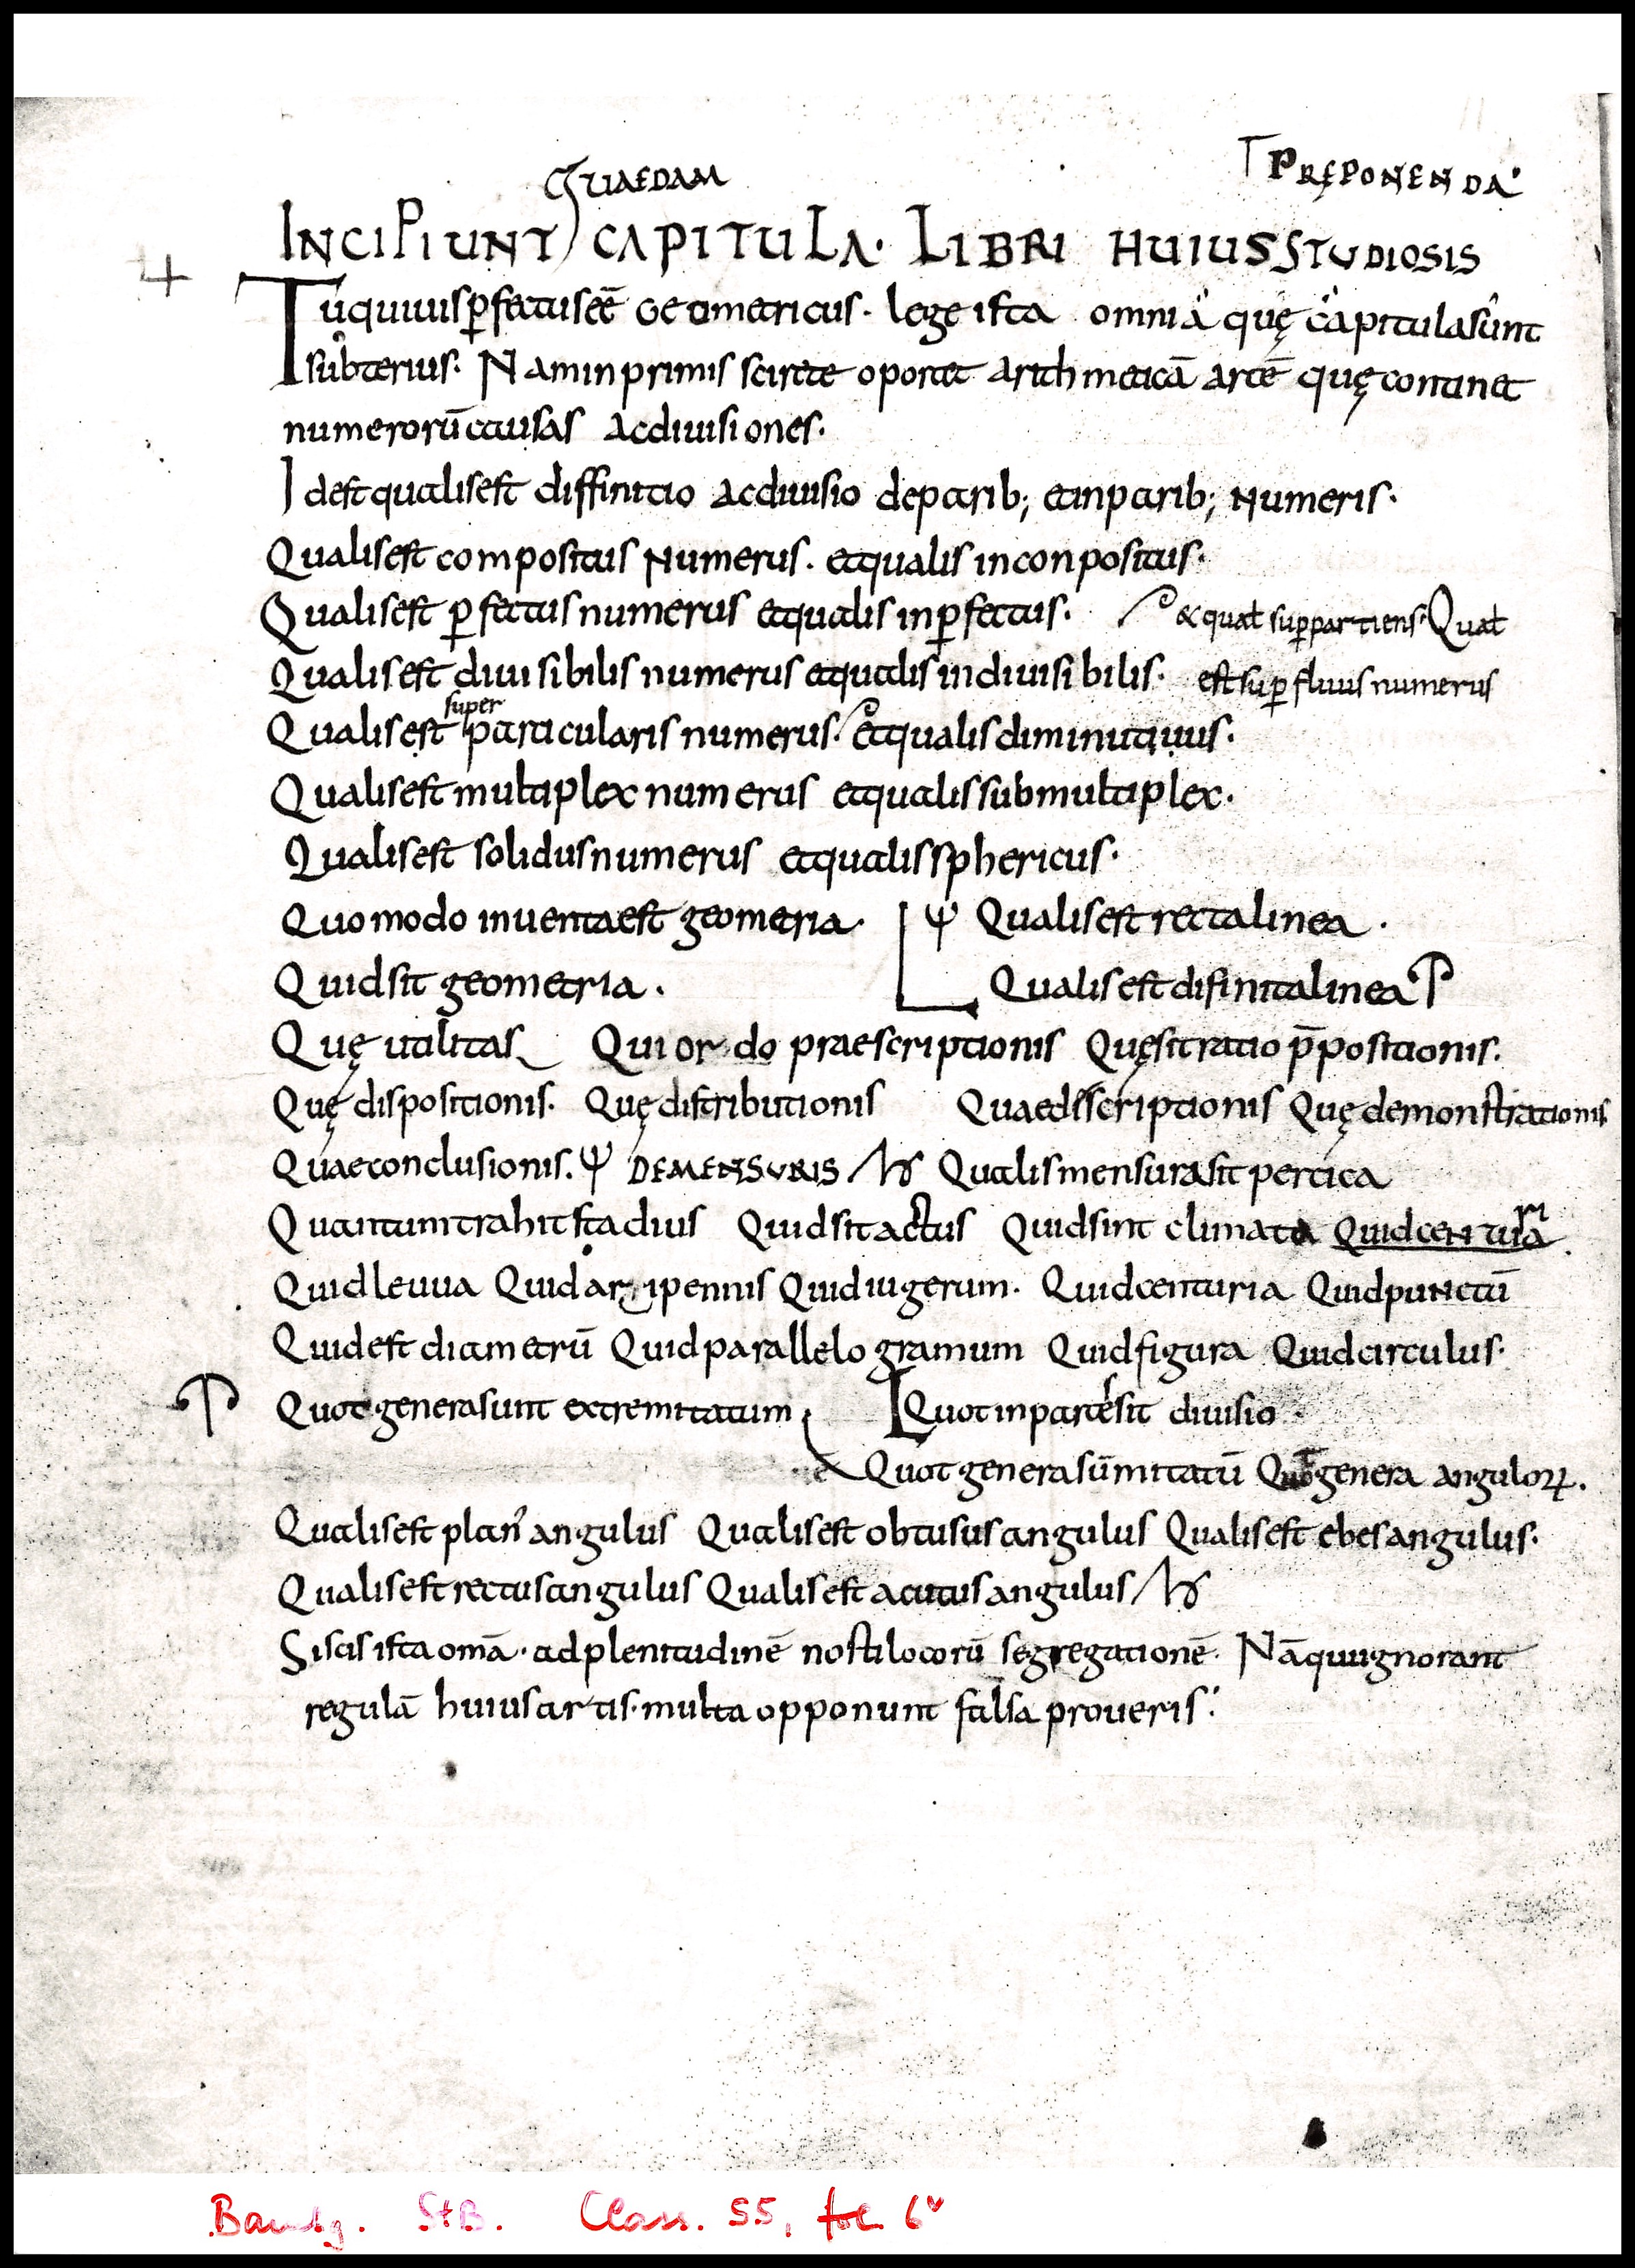 QUAEDAM
PRĘPONENDA
INCIPIUNT CAPITULA· LIBRI HUIUS STUDIOSIS
Tu qui uis ꝑfectus eē Geometricus· lege ista omnia quę capitula sunt
subterius· Nam in primis scire te oportet arithmeticā artē quę continet
numerorū causas ac diuisiones·
Id est qualis est diffinitio ac diuisio de parib; et inparib; Numeris·
Qualis est compositus Numerus· et qualis inconpositus·
Qualis est ꝑfectus numerus et qualis inꝑfectus· & qual suꝑpartiens· Qual
Qualis est diuisibilis numerus et qualis indiuisibilis· est suꝑfluus numerus
super
Qualis est particularis numerus· et qualis diminutiuus·
Qualis est multiplex numerus et qualis submultiplex·
Qualis est solidus numerus et qualis sphericus·
Quomodo inuenta est geometria· Ψ Qualis est recta linea·
Quid sit geometria· Qualis est difinita linea
Quę utilitas Qui ordo praescriptionis Quę sit ratio p̄positionis·
Quę dispositionis· Quę distributionis Quae discriptionis Quę demonstrationis
Quae conclusionis· Ψ DE MENSURIS Qualis mensura sit pertica
Quantum trahit stadius Quid sit actus Quid sint climata Quid centuria
Quid leuua Quid aripennis Quid iugerum· Quid centuria Quid punctū
Quid est diametrū Quid parallelogramum Quid figura Quid circulus·
Quot genera sunt extremitatum Quot in partes sit diuisio
Quot genera sūmitatū Quot genera anguloꝝ·
Qualis est plan' angulus Qualis est obtusus angulus Qualis est ebes angulus·
Qualis est rectus angulus Qualis est acutus angulus
Si scis ista omā· ad plenitudinē nosti locorū segregationē· Nā qui ignorant
regulā huius artis· multa opponunt falsa pro ueris·
Bambg. StB. Class. 55, fol. 6ᵛ